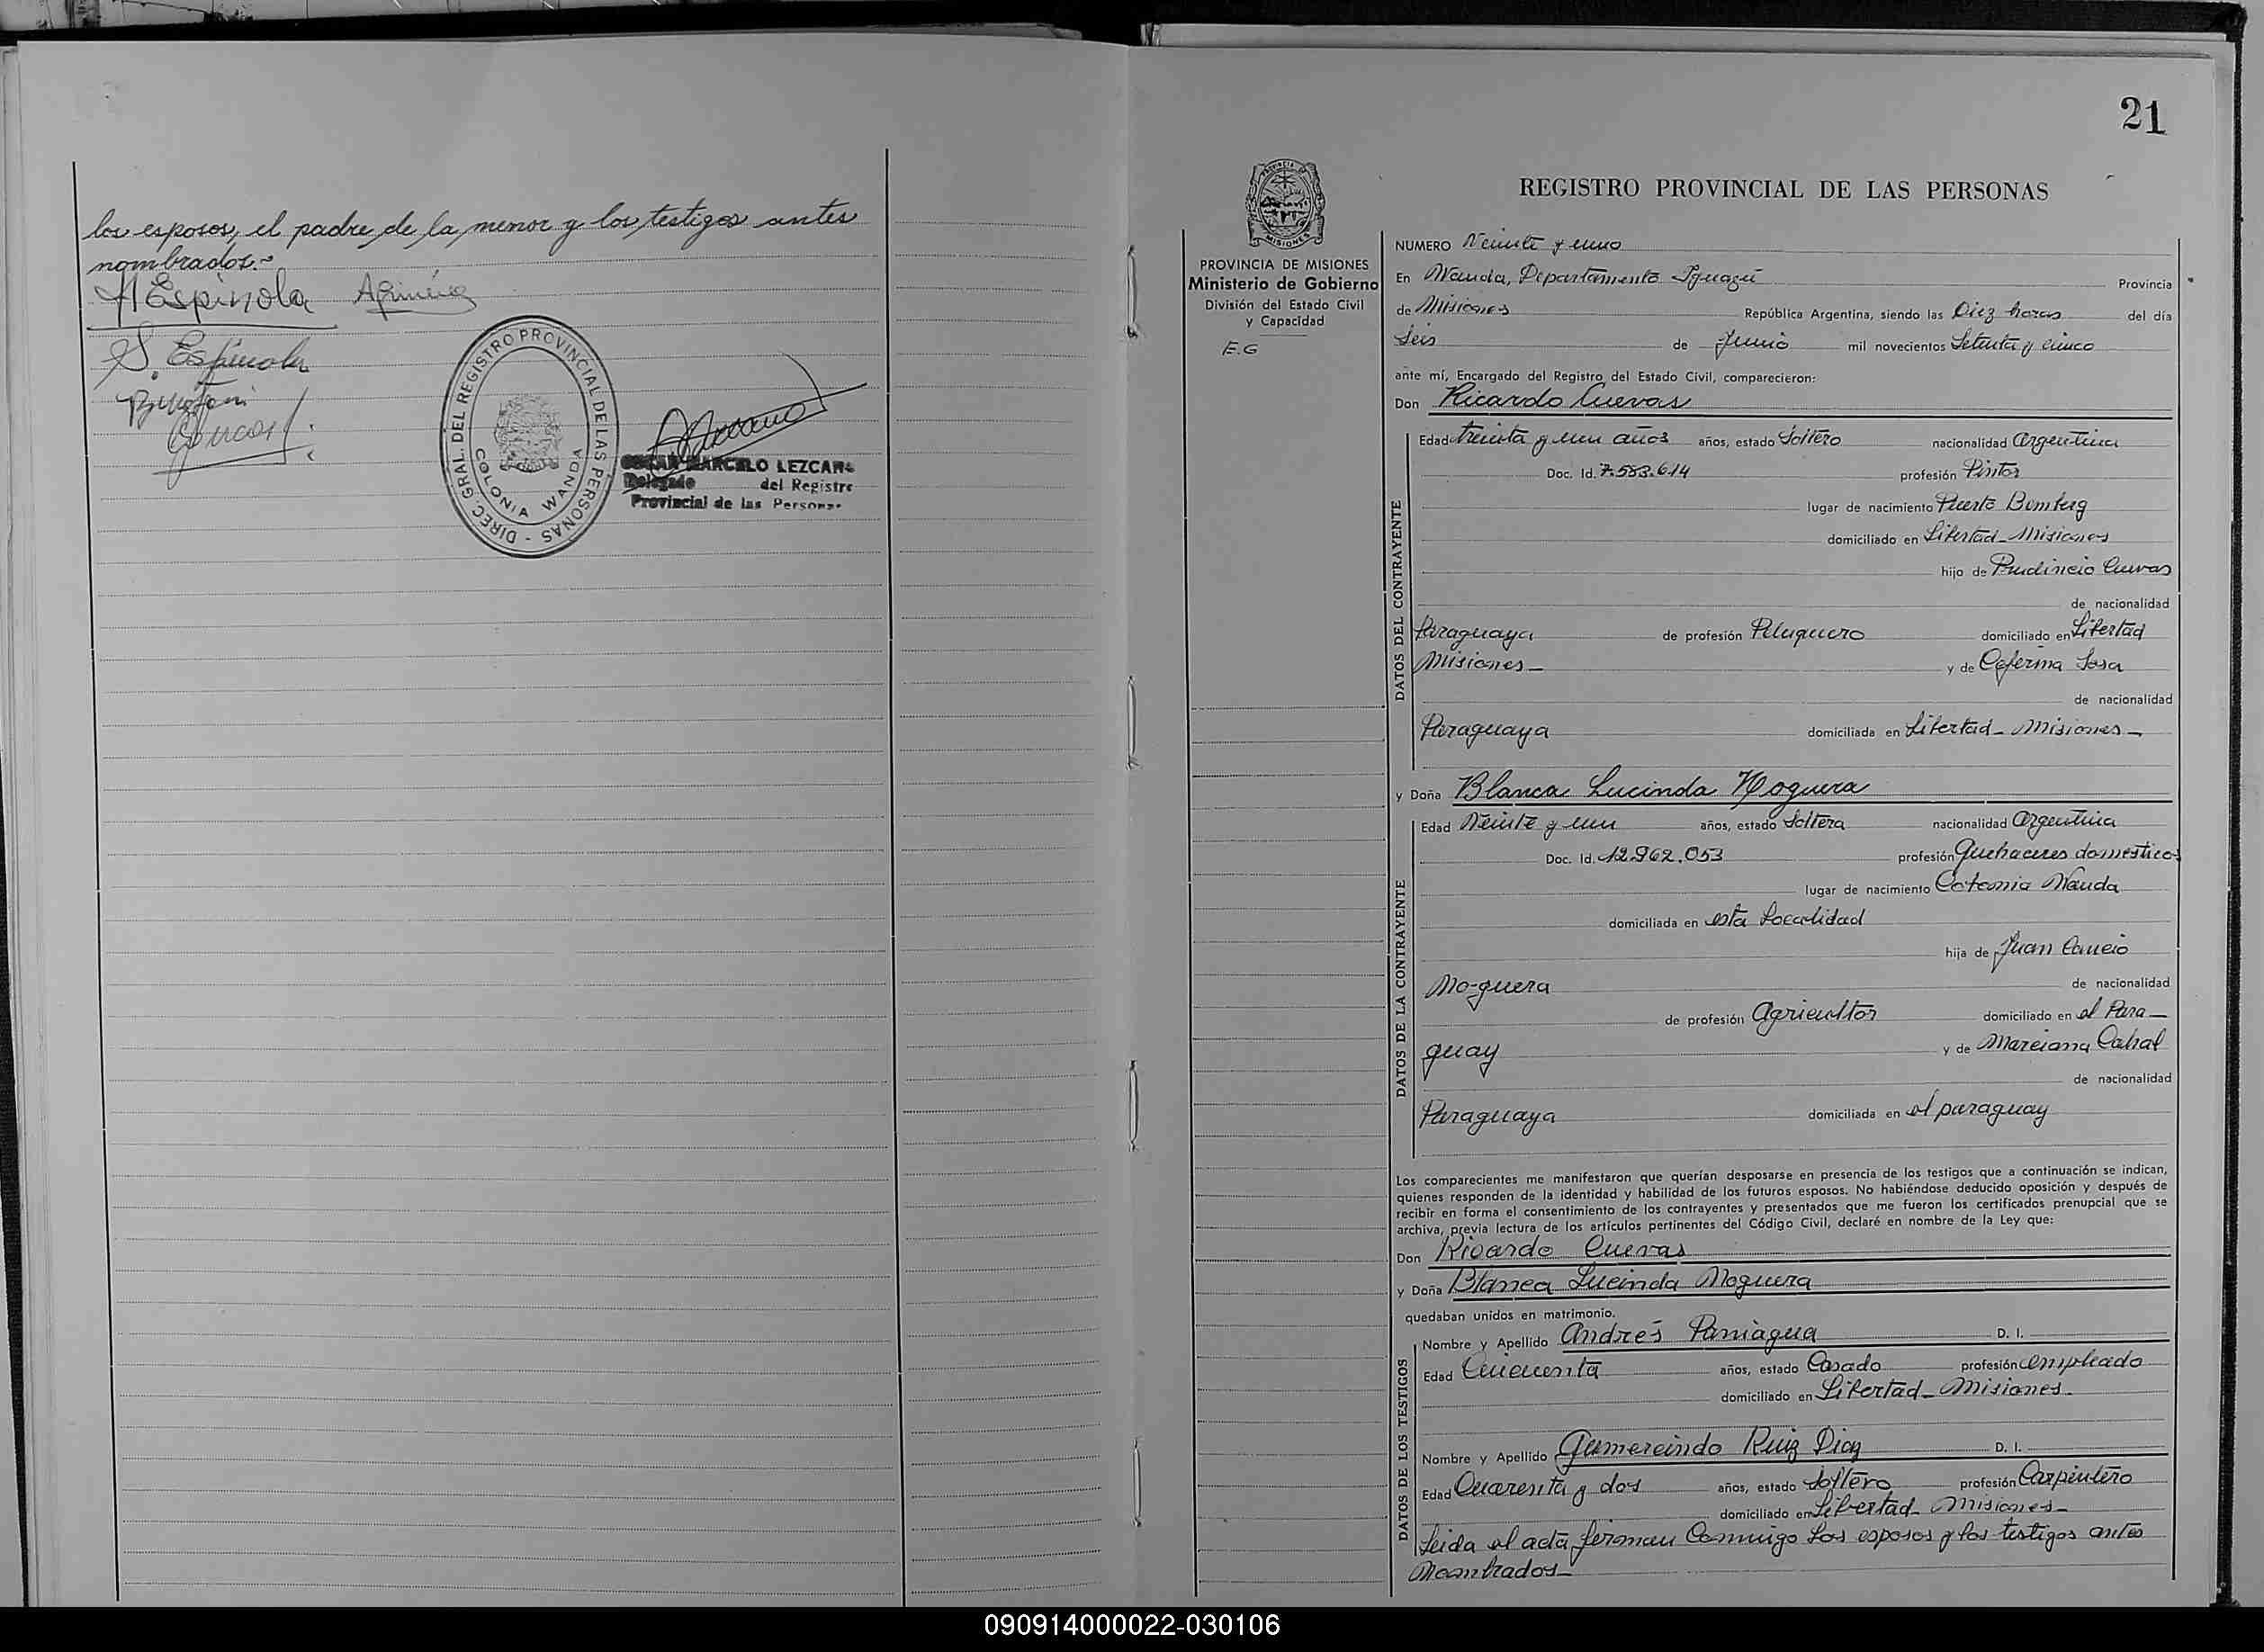 los esposos, el padre de la menor y los testigos antes
nombrados.-
H Espinola
S. Espinola
DIREC. GRAL. DEL REGISTRO PROVINCIAL DE LAS PERSONAS -
COLONIA WANDA
OSCAR MARCELO LEZCANO
Delegado del Registro
Provincial de las Personas
21
PROVINCIA DE MISIONES
Ministerio de Gobierno
División del Estado Civil
y Capacidad
E.G
REGISTRO PROVINCIAL DE LAS PERSONAS
NUMERO Veinte y uno
En Wanda, Departamento Iguazú Provincia
de Misiones República Argentina, siendo las Diez horas del día
Seis de Junio mil novecientos Setenta y cinco
ante mí, Encargado del Registro del Estado Civil, comparecieron:
Don Ricardo Cuevas
DATOS DEL CONTRAYENTE
Edad treinta y un años años, estado Soltero nacionalidad Argentina
Doc. Id. 7.583.614 profesión Pintor
lugar de nacimiento Puerto Bemberg
domiciliado en Libertad - Misiones
hijo de Prudincio Cuevas
de nacionalidad
Paraguaya de profesión Peluquero domiciliado en Libertad
Misiones- y de Ceferina Sosa
de nacionalidad
Paraguaya domiciliada en Libertad - Misiones -
y Doña Blanca Lucinda Noguera
DATOS DE LA CONTRAYENTE
Edad Veinte y un años, estado Soltera nacionalidad Argentina
Doc. Id. 12.962.053 profesión Quehaceres domésticos
lugar de nacimiento Colonia Wanda
domiciliada en esta Localidad
hija de Juan
Noguera de nacionalidad
de profesión Agricultor domiciliado en el Para-
guay y de Marciana Cabral
de nacionalidad
Paraguaya domiciliada en el paraguay
Los comparecientes me manifestaron que querían desposarse en presencia de los testigos que a continuación se indican,
quienes responden de la identidad y habilidad de los futuros esposos. No habiéndose deducido oposición y después de
recibir en forma el consentimiento de los contrayentes y presentados que me fueron los certificados prenupcial que se
archiva, previa lectura de los artículos pertinentes del Código Civil, declaré en nombre de la Ley que:
Don Ricardo Cuevas
y Doña Blanca Lucinda Noguera
quedaban unidos en matrimonio.
DATOS DE LOS TESTIGOS
Nombre y Apellido Andrés Paniagua D. I.
Edad Cincuenta años, estado Casado profesión empleado
domiciliado en Libertad - Misiones -
Nombre y Apellido Gumercindo Ruiz Diaz D. I.
Edad Cuarenta y dos años, estado Soltero profesión Carpintero
domiciliado en Libertad - Misiones -
Leida el acta firman Conmigo Los esposos y los testigos antes
Nombrados-
090914000022-030106